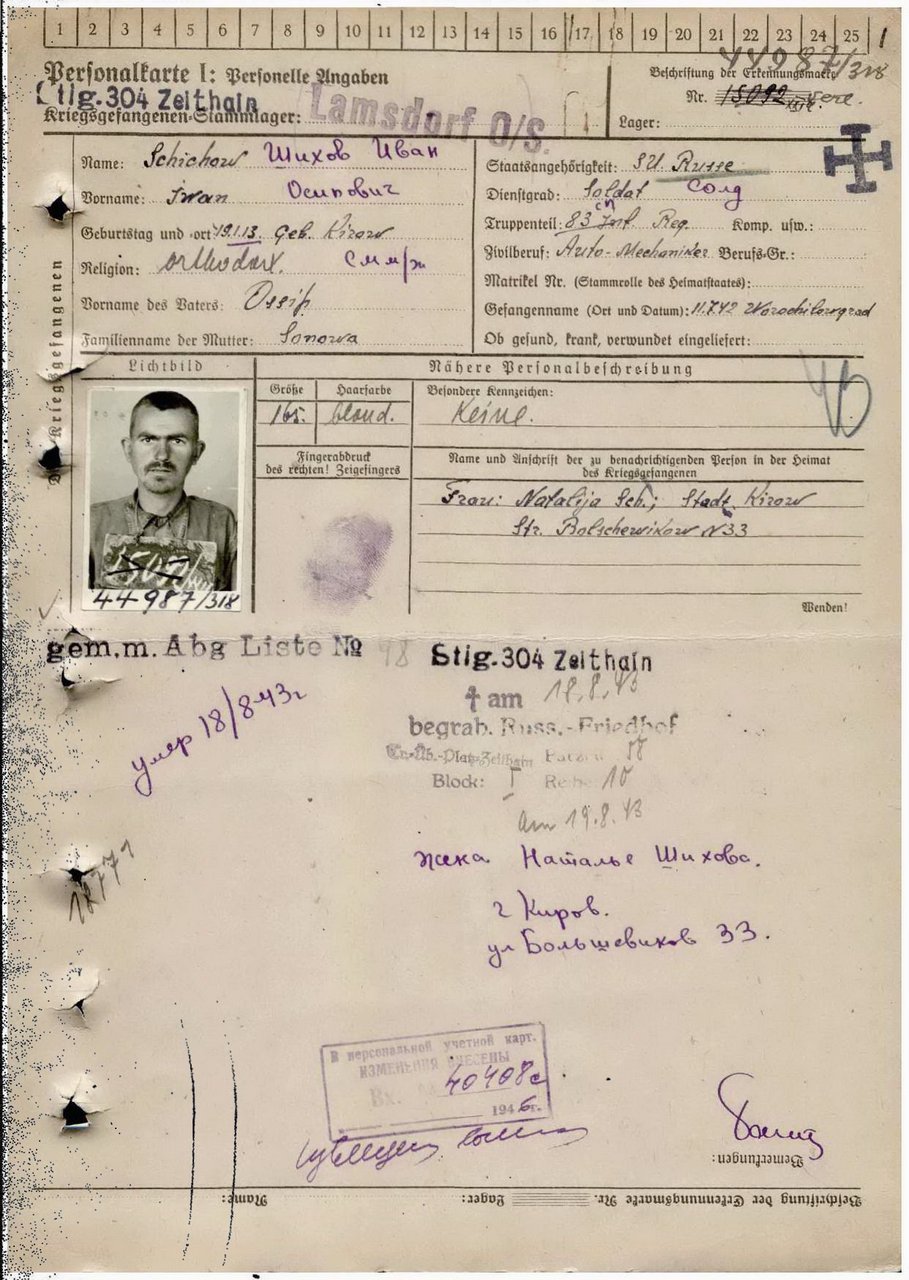 1 2 3 4 5 6 7 8 9 10 11 12 13 14 15 16 17 18 19 20 21 22 23 24 25
44987/318
Personalkarte I: Personelle Angaben
Beschriftung der Erkennungsmarke
Stlg. 304 Zeithain
Nr. 15092
Kriegsgefangenen-Stammlager: Lamsdorf O/S.
Lager:
Name: Schichow Шихов Иван
Vorname: Iwan Осипович
Geburtstag und -ort 19.1.13. Geb. Kirow
Religion: orthodox.
Vorname des Vaters: Ossip
Familienname der Mutter: Sonowa
Staatsangehörigkeit: SU. Russe
Dienstgrad: Soldat Солд
Truppenteil: 83 Inf. Reg. Komp. usw.:
Zivilberuf: Auto-Mechaniker Berufs-Gr.:
Matrikel Nr. (Stammrolle des Heimatstaates):
Gefangennahme (Ort und Datum): 11.7.42 Woroschilowgrad
Ob gesund, krank, verwundet eingeliefert:
Des Kriegsgefangenen
Lichtbild
Nähere Personalbeschreibung
Größe
Haarfarbe
Besondere Kennzeichen:
165.
blond.
Keine.
Fingerabdruck
des rechten! Zeigefingers
Name und Anschrift der zu benachrichtigenden Person in der Heimat
des Kriegsgefangenen
Frau: Natalija Sch.; Stadt Kirow
Str. Bolschewikow N33
44987/318
Wenden!
gem. m. Abg Liste № 98
Stlg. 304 Zeithain
† am 18.8.43
begrab. Russ.-Friedhof
Tr.-Üb.-Platz-Zeithain Parzelle 58
Block: I Reihe 10
am 19.8.43
умер 18/8-43г
Жена Наталье Шихова.
г Киров.
ул Большевиков 33.
18771
В персональной учетной карт.
ИЗМЕНЕНИЯ ВНЕСЕНЫ
Вх. 40408с
1946г.
Bemerkungen:
Beschriftung der Erkennungsmarke Nr.
Lager:
Name: